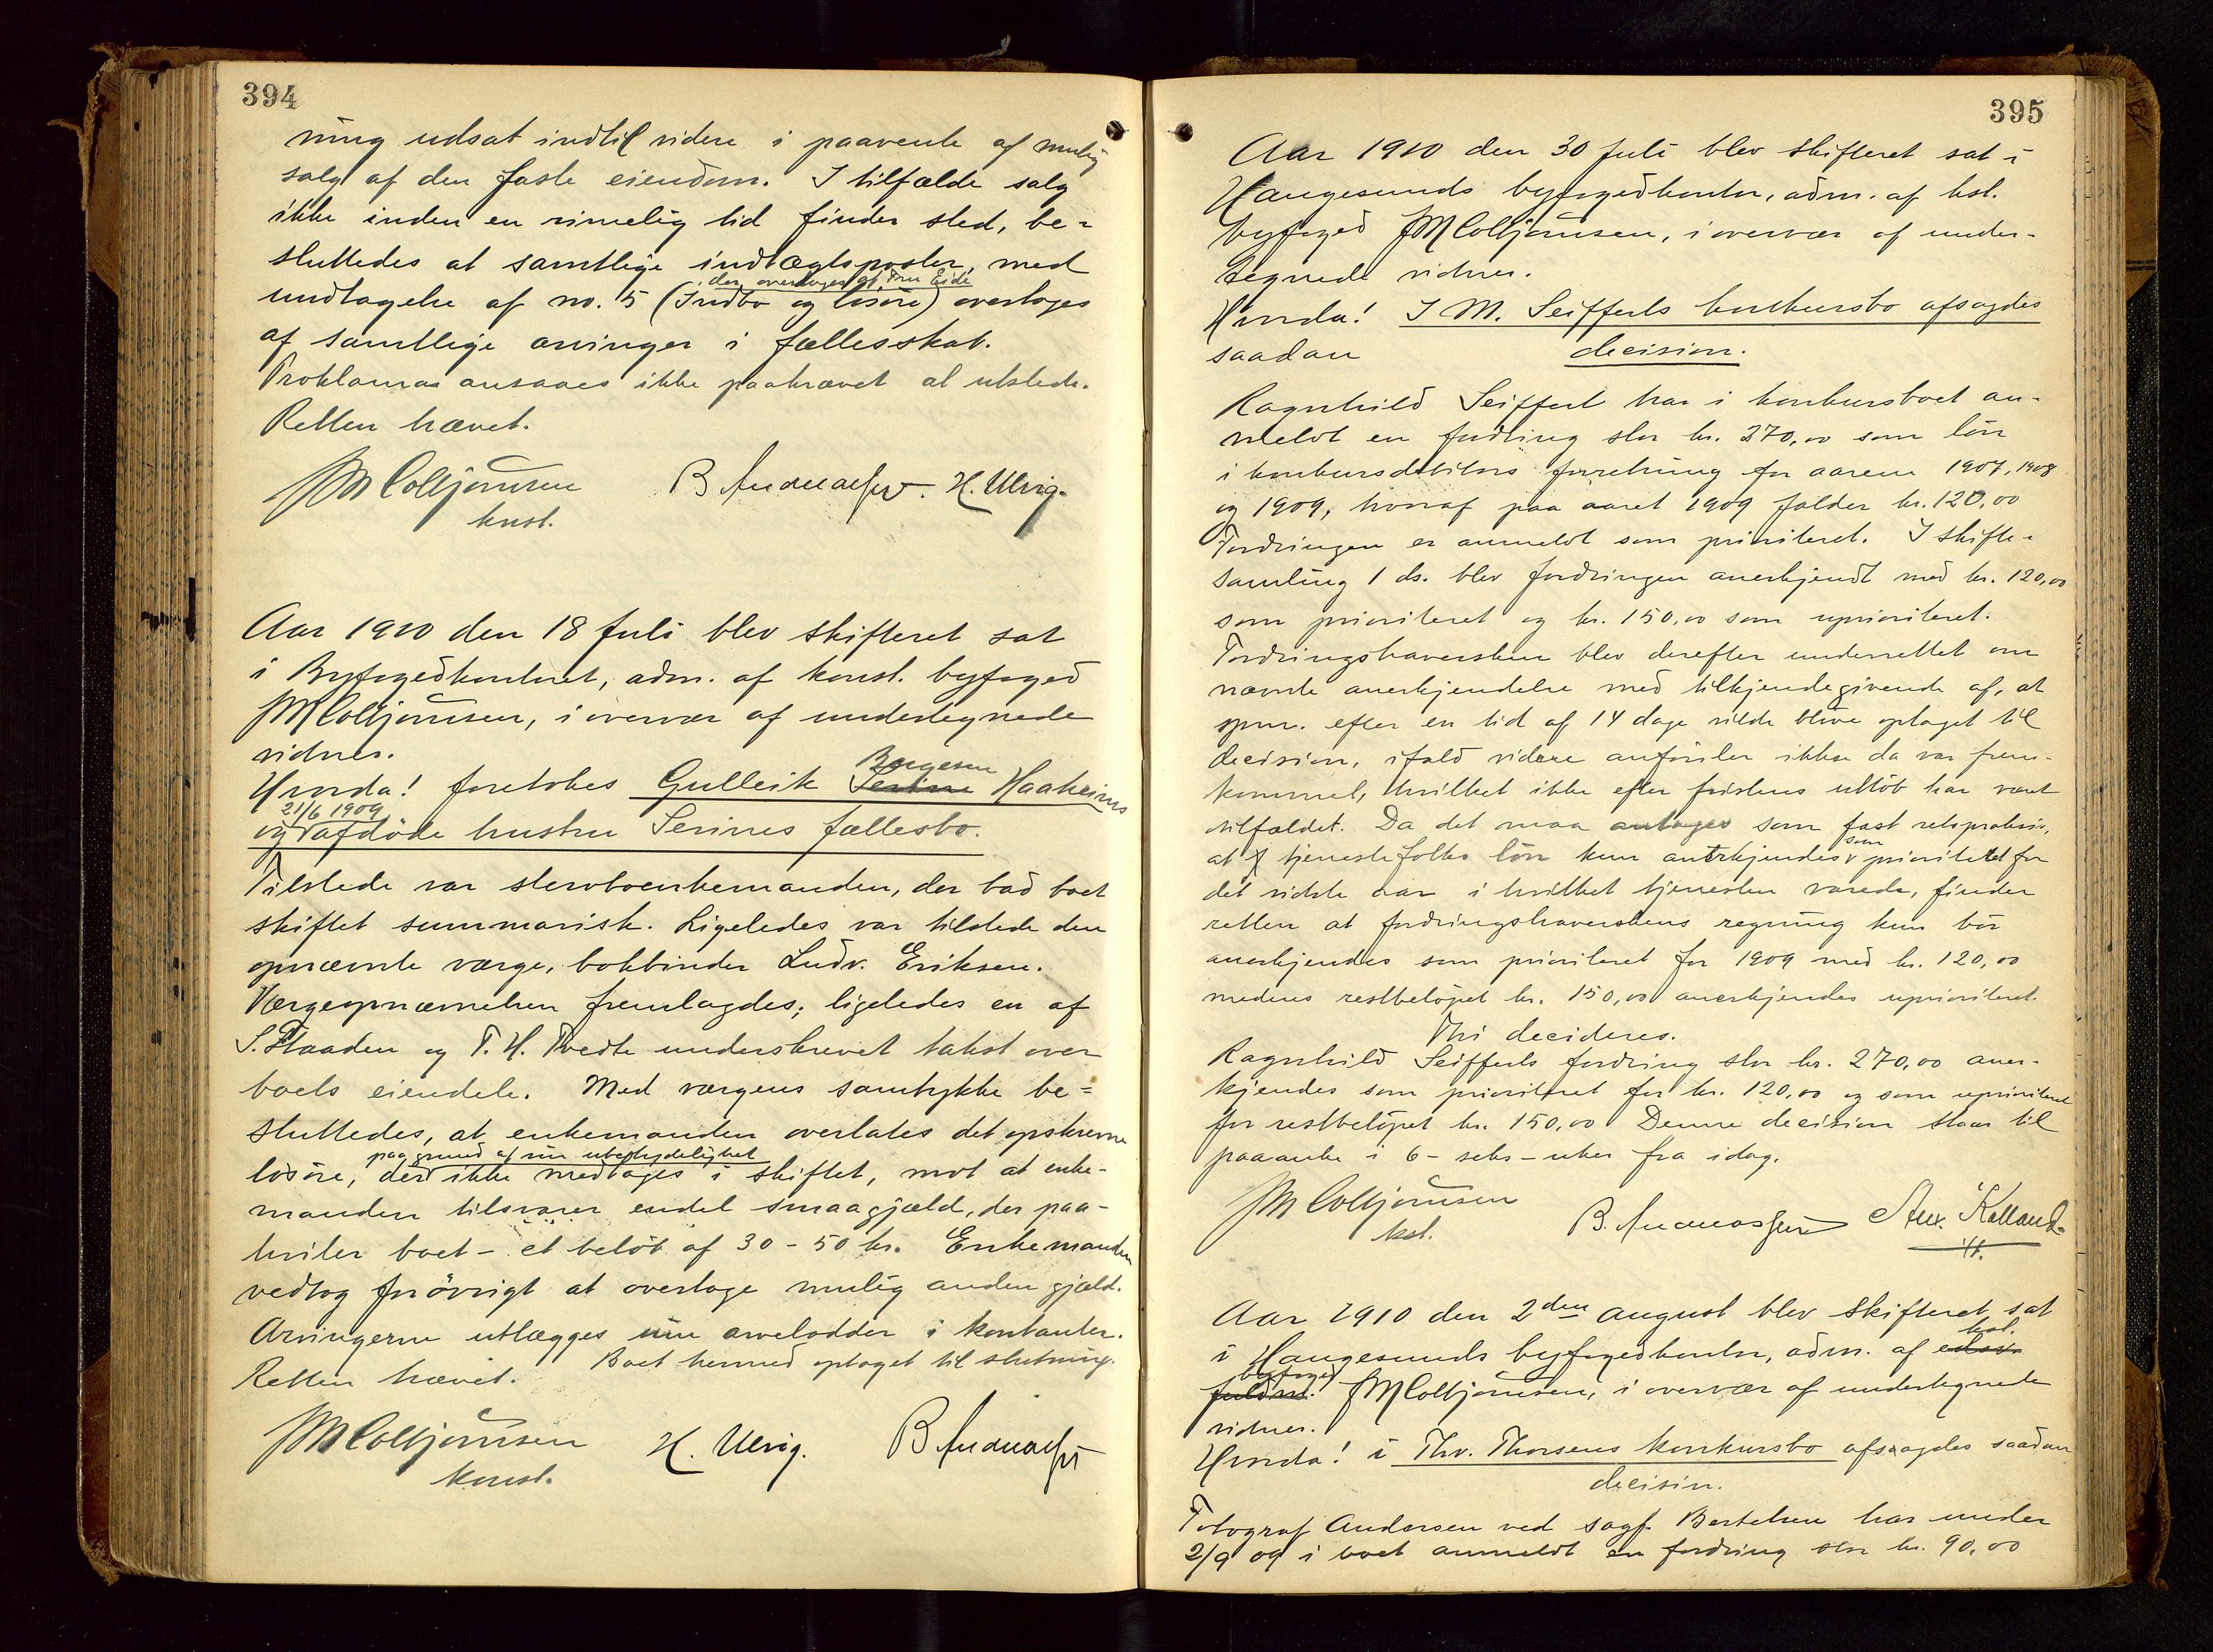 394
ning udsat indtil videre i paavente af mulig
salg af den faste eiendom. I tilfælde salg
ikke inden en rimelig tid finder sted, be=
sluttedes at samtlige indtægtsposter, med
der overtages af Fru Eide
undtagelse af no. 5 (Indbo og løsøre) overtages
af samtlige arvinger i fællesskab.
Proklama ansaaes ikke paakrævet at utstede.
Retten hævet.
JM Colbjørnsen B Andreassen. H. Ulvig.
konst.
Aar 1910 den 18 Juli blev skifteret sat
i Byfogedkontoret, adm. af konst. byfoged
JM Colbjørnsen, i overvær af undertegnede
vidner.
Børgesen
Hvorda! foretokes Gulleik Serine Haaheims
21/6 1909
og afdøde hustru Serines fællesbo.
Tilstede var stervboenkemanden, der bad boet
skiftet summarisk. Ligeledes var tilstede den
opnævnte værge, bokbinder Ludv. Eriksen.
Værgeopnævnelsen fremlagdes; ligeledes en af
S. Staaden og T. H. Tvedte underskrevet takst over
boets eiendele. Med værgens samtykke be=
sluttedes, at enkemanden overlates det opskrevne
paa grund af sin ubetydelighet
løsøre, der ikke medtages i skiftet, mot at enke-
manden tilsvarer endel smaagjæld, der paa-
hviler boet - et beløb af 30 - 50 kr. Enkemanden
vedtog forøvrigt at overtage mulig anden gjæld.
Arvingerne utlægges sine arvelodder i kontanter.
Retten hævet. Boet hermed optaget til slutning.
JM Colbjørnsen H. Ulvig. B Andreassen
konst.
395
Aar 1910 den 30 Juli blev skifteret sat i
Haugesunds byfogedkontor, adm. af kst.
byfoged JM Colbjørnsen, i overvær af under-
tegnede vidner.
Hvorda! I M. Seifferts konkursbo afsagdes
saadan decision.
Ragnhild Seiffert har i konkursboet an-
meldt en fordring stor kr. 270,00 som løn
i konkursdebitors forretning for aarene 1907, 1908
og 1909, hvoraf paa aaret 1909 falder kr. 120,00
Fordringen er anmeldt som prioriteret. I skifte-
samling 1 ds. blev fordringen anerkjendt med kr. 120,00
som prioriteret og kr. 150,00 som uprioriteret.
Fordringshaversken blev derefter underrettet om
nævnte anerkjendelse med tilkjendegivende af, at
spm. efter en tid af 14 dage vilde blive optaget til
decision, ifald videre anførsler ikke da var frem-
kommet, hvilket ikke efter fristens utløb har været
tilfældet. Da det maa antages som fast retspraksis,
som
at tjenestefolks løn kun anerkjendes prioritetet for
det sidste aar i hvilket tjenesten varede, finder
retten at fordringshaverskens regning kun bør
anerkjendes som prioriteret for 1909 med kr. 120,00
medens restbeløpet kr. 150,00 anerkjendes uprioriteret.
Thi decideres.
Ragnhild Seifferts fordring stor kr. 270,00 aner-
kjendes som prioriteret for kr. 120,00 og som uprioriteret
for restbeløpet kr. 150,00 Denne decision staar til
paaanke i 6 - seks - uker fra idag.
JM Colbjørnsen B. Andreassen Alex. Kielland
kst.
Aar 1910 den 2den august blev skifteret sat
kst.
i Haugesunds byfogedkontor, adm. af edsv.
byfoged
fuldm. JM Colbjørnsen, i overvær af undertegnede
vidner.
Hvorda! i Thv. Thorsens konkursbo afsagdes saadan
decision.
Fotograf Andersen ved sagf. Bertelsen har under
2/9 09 i boet anmeldt en fordring stor kr. 90,00